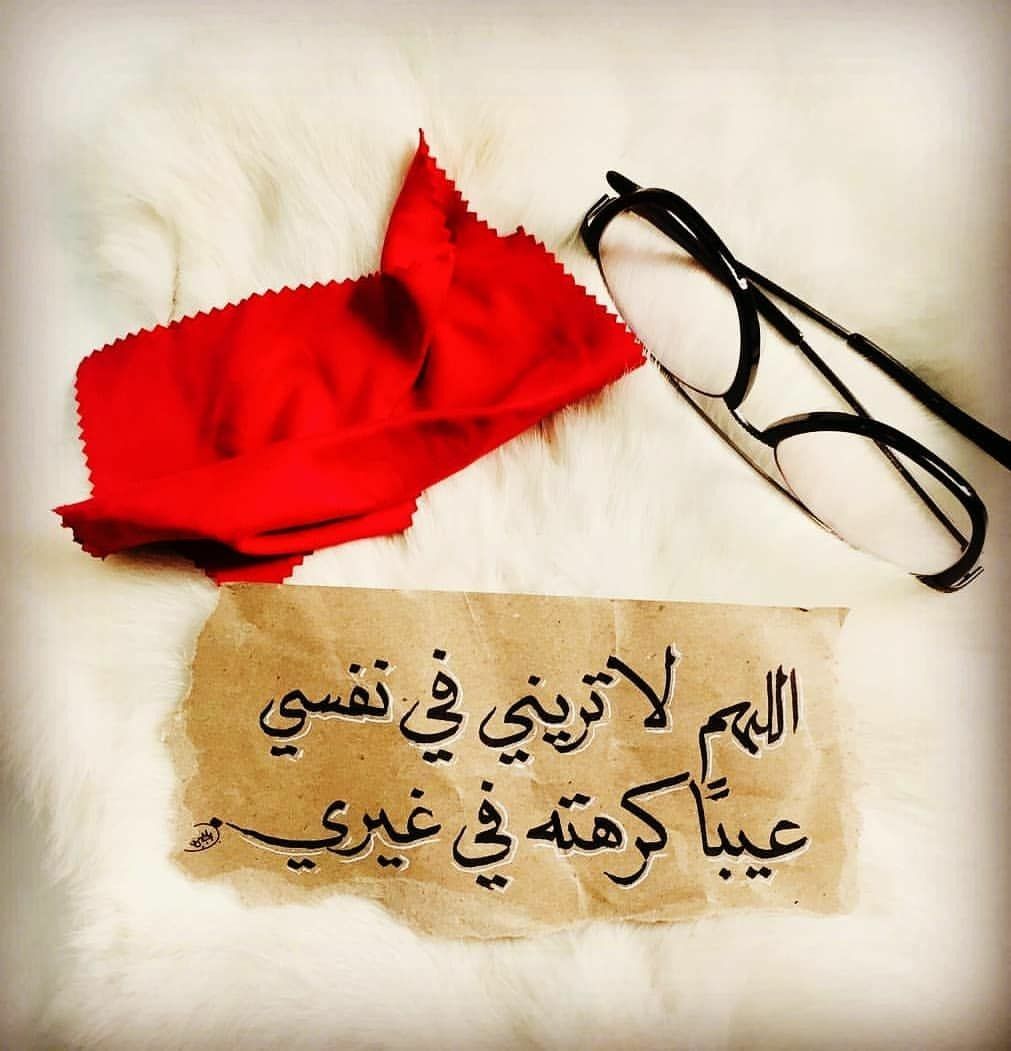 اللهم لا تريني في نفسي
عيبًا كرهته في غيري